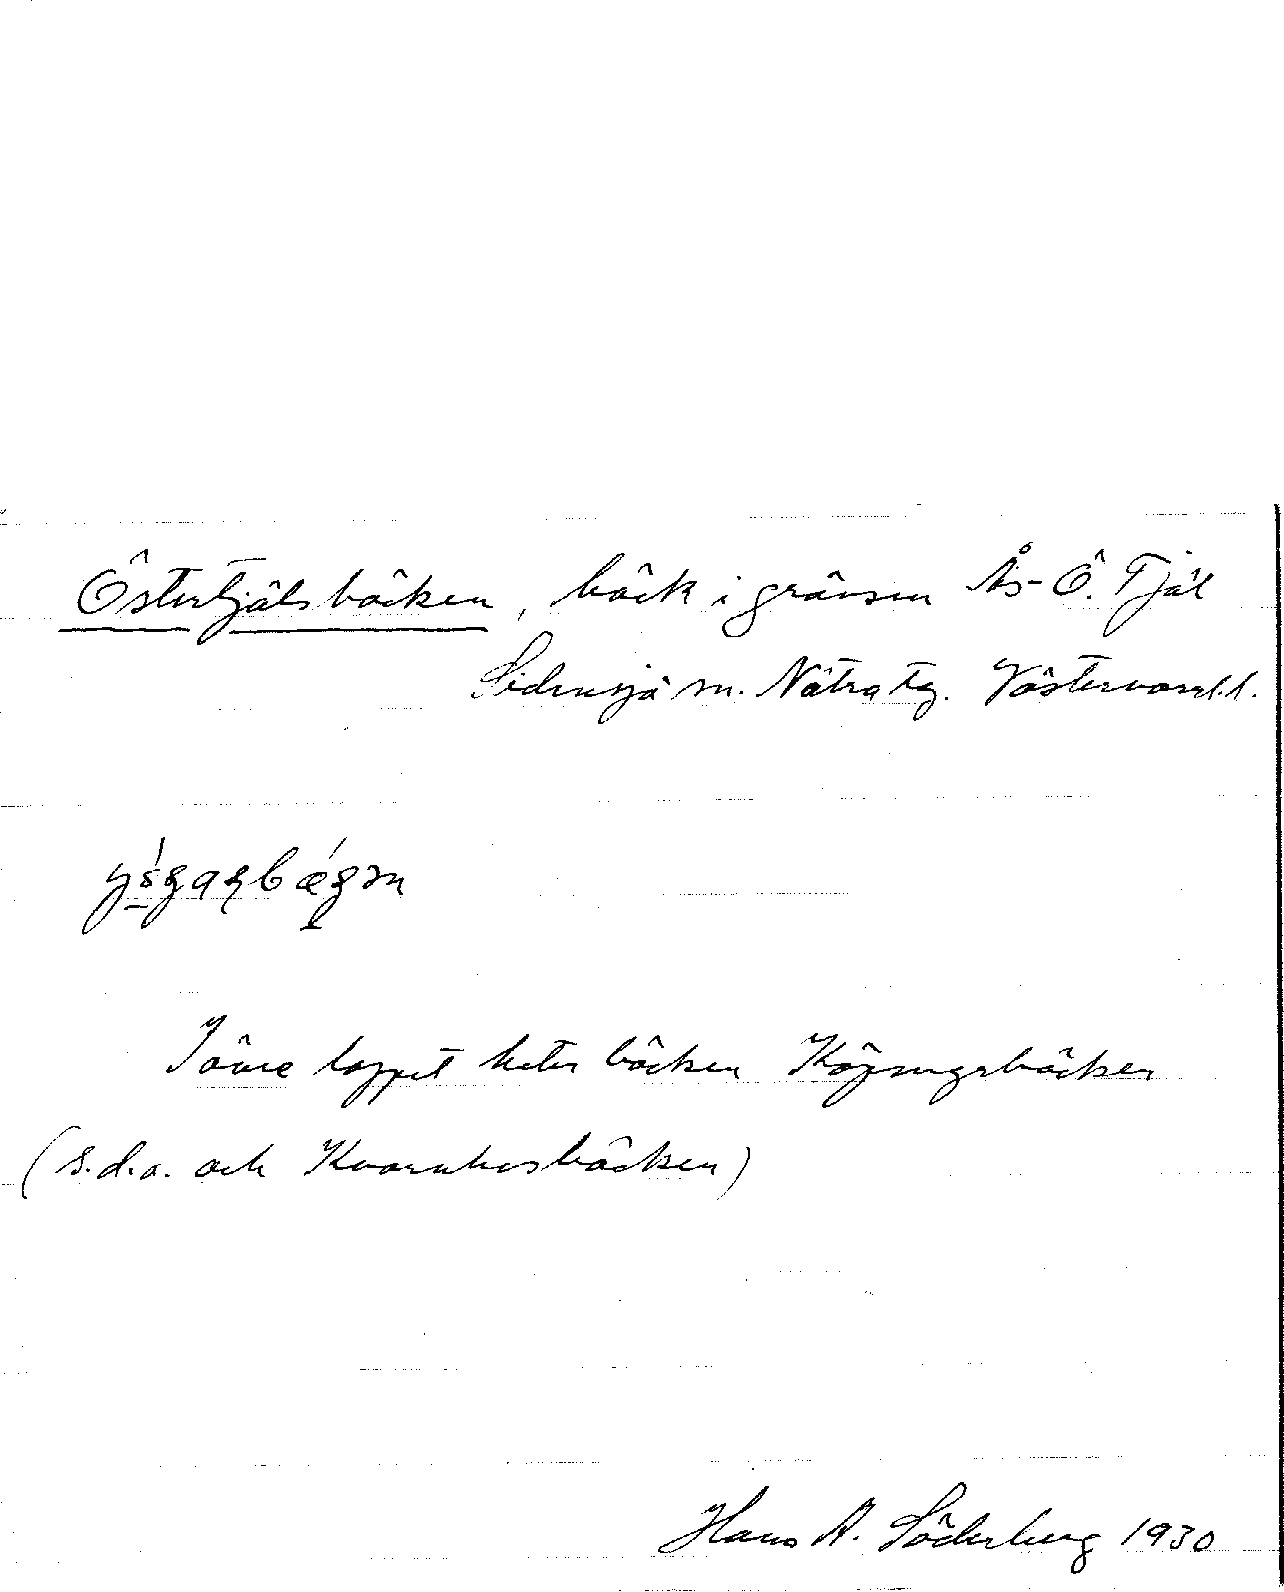 Östertjälsbäcken, bäck i gränsen Ås-Ö. Tjäl
Sidensjö sn. Nätra tg. Västernorrl.l.
I övre loppet heter bäcken Köpingsbäcken
(s.d.o. och Kvarnhusbäcken)
Hans A. Söderberg 1930